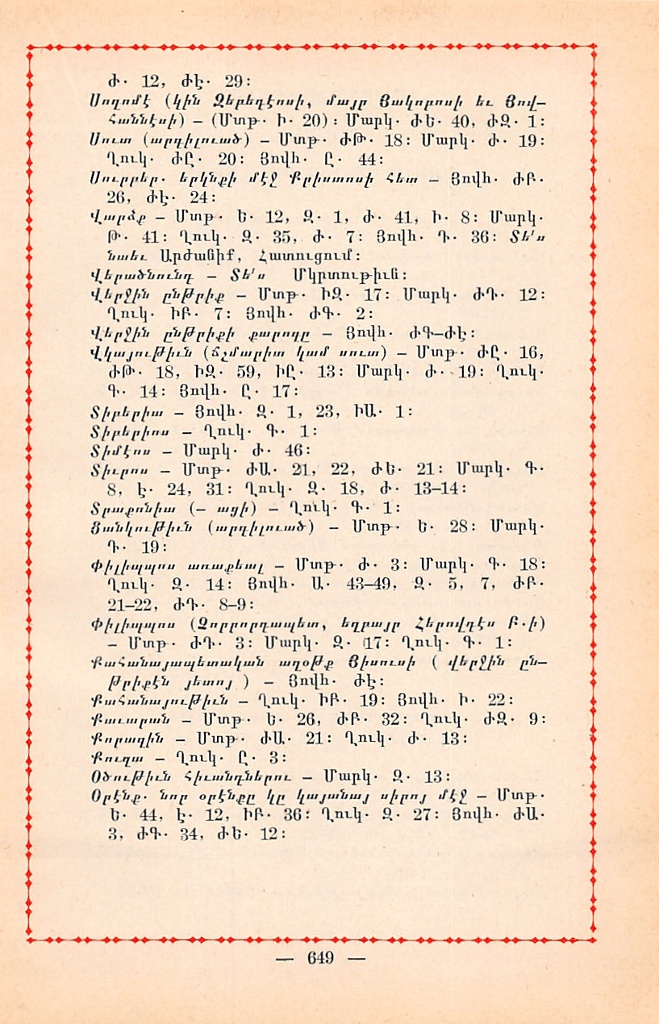 Ժ․ 12, ԺԷ․ 29։
Սողոմէ (կին Զեբեդէոսի, մայր Յակոբոսի եւ Յով-
հաննէսի) – (Մտթ․ Ի․ 20)։ Մարկ․ ԺԵ․ 40, ԺԶ․ 1։
Սուտ (արգիլուած) – Մտթ․ ԺԹ․ 18։ Մարկ․ Ժ․ 19։
Ղուկ․ ԺԸ․ 20։ Յովհ․ Ը․ 44։
Սուրբեր․ երկնքի մէջ Քրիստոսի հետ – Յովհ․ ԺԲ․
26, ԺԷ․ 24։
Վարձք – Մտթ․ Ե․ 12, Զ․ 1, Ժ․ 41, Ի․ 8։ Մարկ․
Թ․ 41։ Ղուկ․ Զ․ 35, Ժ․ 7։ Յովհ․ Դ․ 36։ Տե՛ս
նաեւ Արժանիք, Հատուցում։
Վերածնունդ – Տե՛ս Մկրտութիւն։
Վերջին ընթրիք – Մտթ․ ԻԶ․ 17։ Մարկ․ ԺԴ․ 12։
Ղուկ․ ԻԲ․ 7։ Յովհ․ ԺԳ․ 2։
Վերջին ընթրիքի քարոզը – Յովհ․ ԺԳ–ԺԷ։
Վկայութիւն (ճշմարիտ կամ սուտ) – Մտթ․ ԺԸ․ 16,
ԺԹ․ 18, ԻԶ․ 59, ԻԸ․ 13։ Մարկ․ Ժ․ 19։ Ղուկ․
Գ․ 14։ Յովհ․ Ը․ 17։
Տիբերիա – Յովհ․ Զ․ 1, 23, ԻԱ․ 1։
Տիբերիոս – Ղուկ․ Գ․ 1։
Տիմէոս – Մարկ․ Ժ․ 46։
Տիւրոս – Մտթ․ ԺԱ․ 21, 22, ԺԵ․ 21։ Մարկ․ Գ․
8, Է․ 24, 31։ Ղուկ․ Զ․ 18, Ժ․ 13–14։
Տրաքոնիա (– ացի) – Ղուկ․ Գ․ 1։
Ցանկութիւն (արգիլուած) – Մտթ․ Ե․ 28։ Մարկ․
Դ․ 19։
Փիլիպպոս առաքեալ – Մտթ․ Ժ․ 3։ Մարկ․ Գ․ 18։
Ղուկ․ Զ․ 14։ Յովհ․ Ա․ 43–49, Զ․ 5, 7, ԺԲ․
21–22, ԺԴ․ 8–9։
Փիլիպպոս (Չորրորդապետ, եղբայր Հերովդէս Բ․ի)
– Մտթ․ ԺԴ․ 3։ Մարկ․ Զ․ 17։ Ղուկ․ Գ․ 1։
Քահանայապետական աղօթք Յիսուսի ( վերջին ըն-
թրիքէն յետոյ ) – Յովհ․ ԺԷ։
Քահանայութիւն – Ղուկ․ ԻԲ․ 19։ Յովհ․ Ի․ 22։
Քաւարան – Մտթ․ Ե․ 26, ԺԲ․ 32։ Ղուկ․ ԺԶ․ 9։
Քորազին – Մտթ․ ԺԱ․ 21։ Ղուկ․ Ժ․ 13։
Քուզա – Ղուկ․ Ը․ 3։
Օծութիւն հիւանդներու – Մարկ․ Զ․ 13։
Օրէնք․ նոր օրէնքը կը կայանայ սիրոյ մէջ – Մտթ․
Ե․ 44, Է․ 12, ԻԲ․ 36։ Ղուկ․ Զ․ 27։ Յովհ․ ԺԱ․
3, ԺԳ․ 34, ԺԵ․ 12։
— 649 —